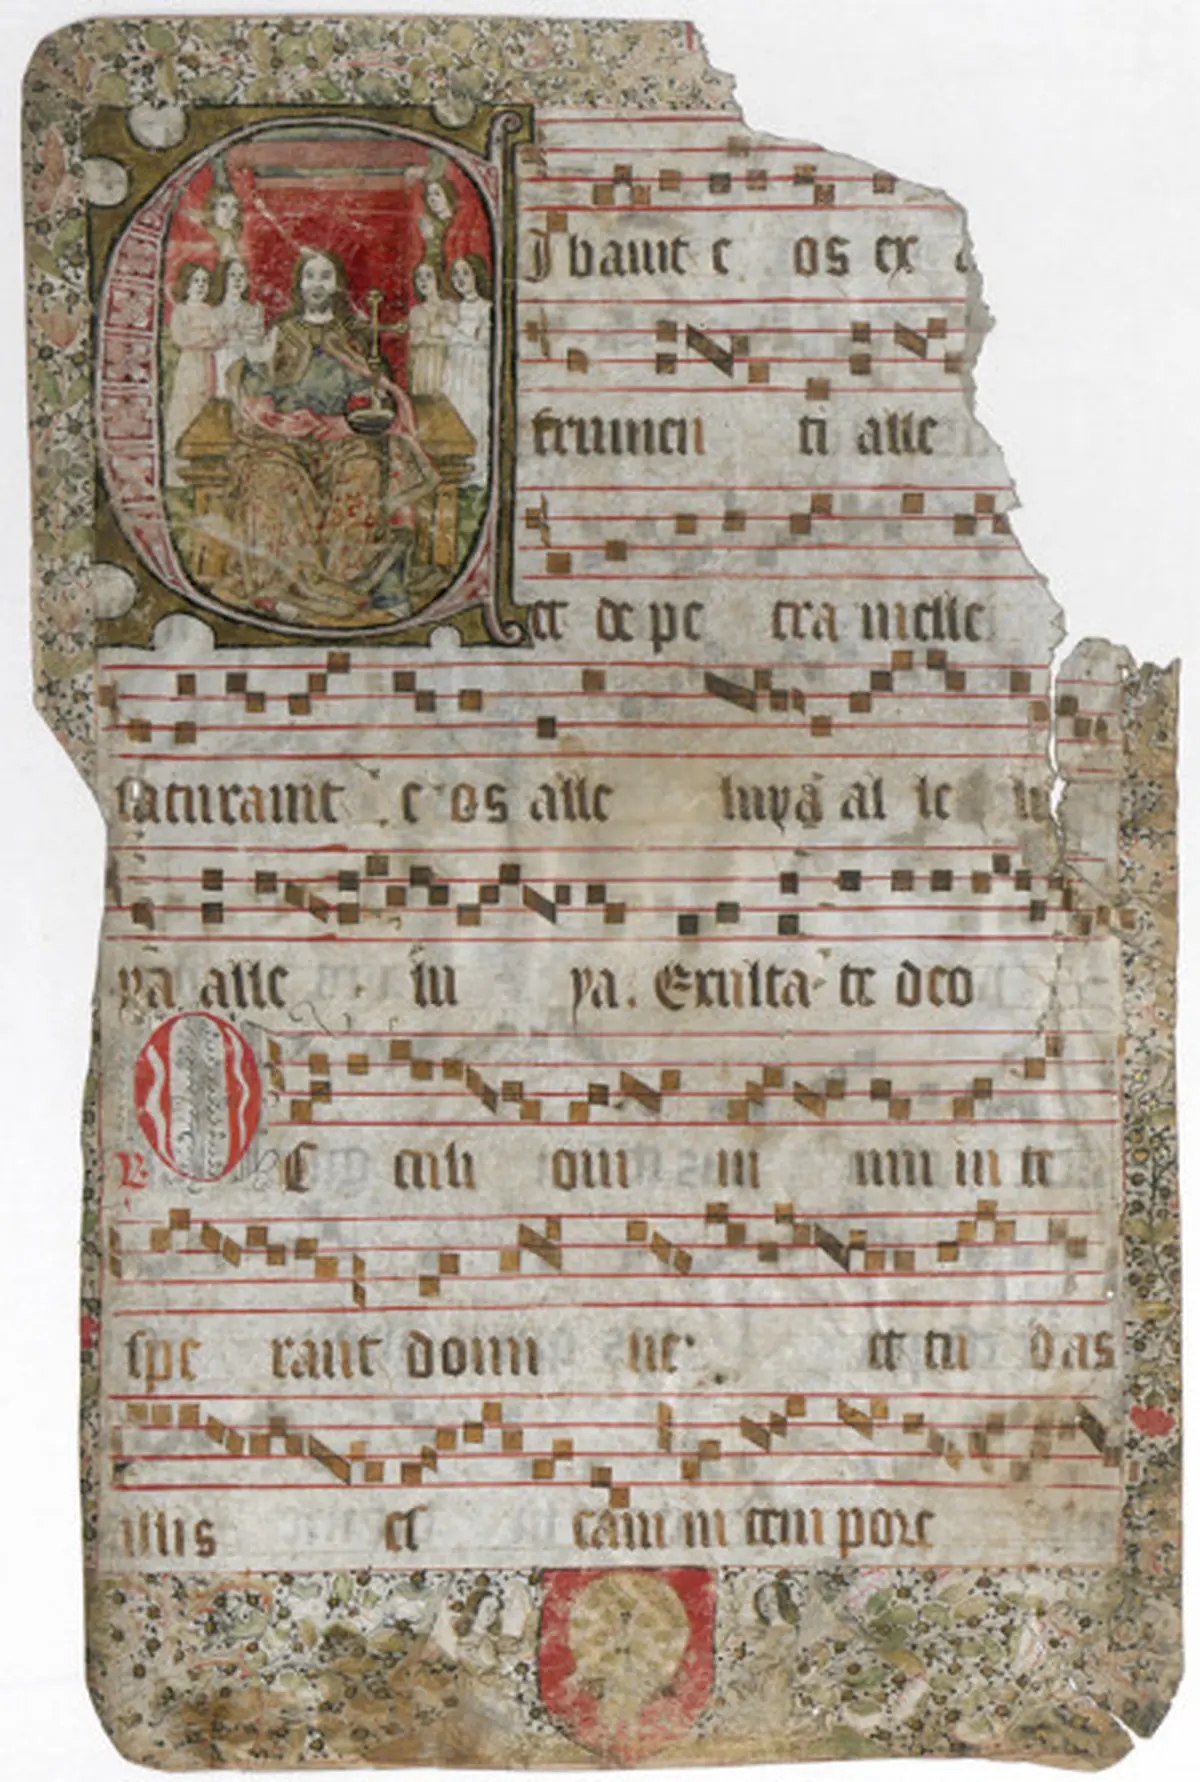 Cibavit e os ex a
frumen ti alle
et de pe tra melle
saturavit e os alle luya al le lu
ya alle lu ya. Exulta te deo
℟ O C culi omni um in te
spe rant domi ne et tu das
illis es cam in tem pore